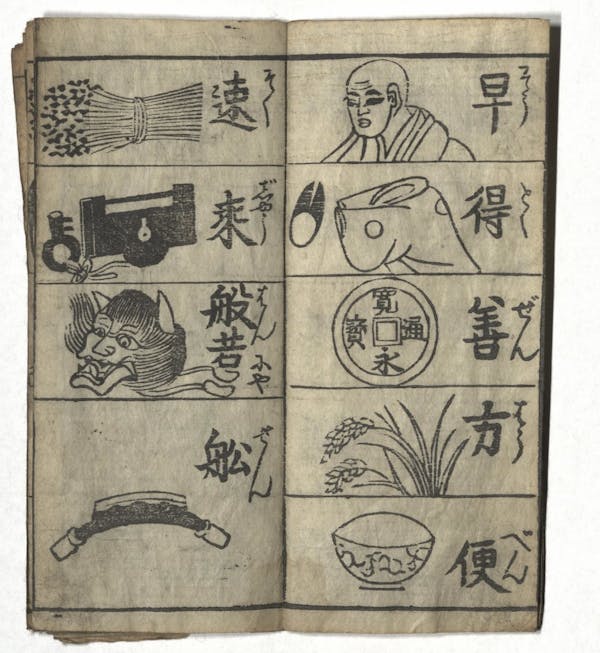 早 そう
得 とく
寛永通寳
善 ぜん
方 はう
便 べん
速 そく
乗 じやう
般若 はんにや
舩 せん